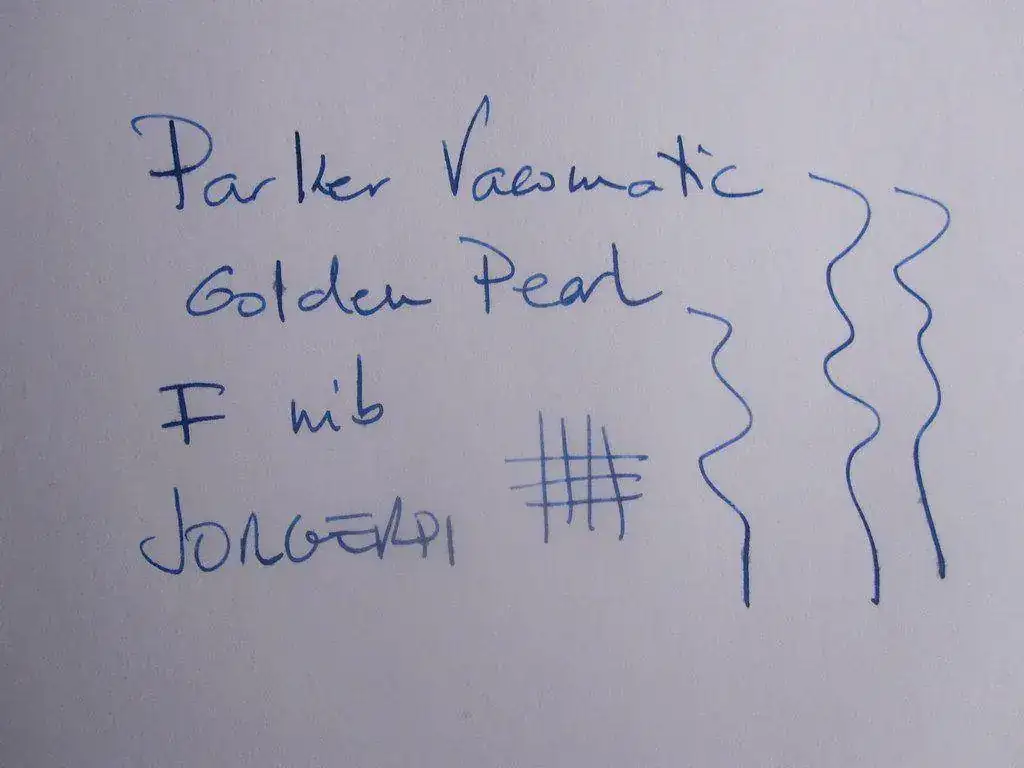 Parker Vacumatic
Golden Pearl
F nib
JORGERPI